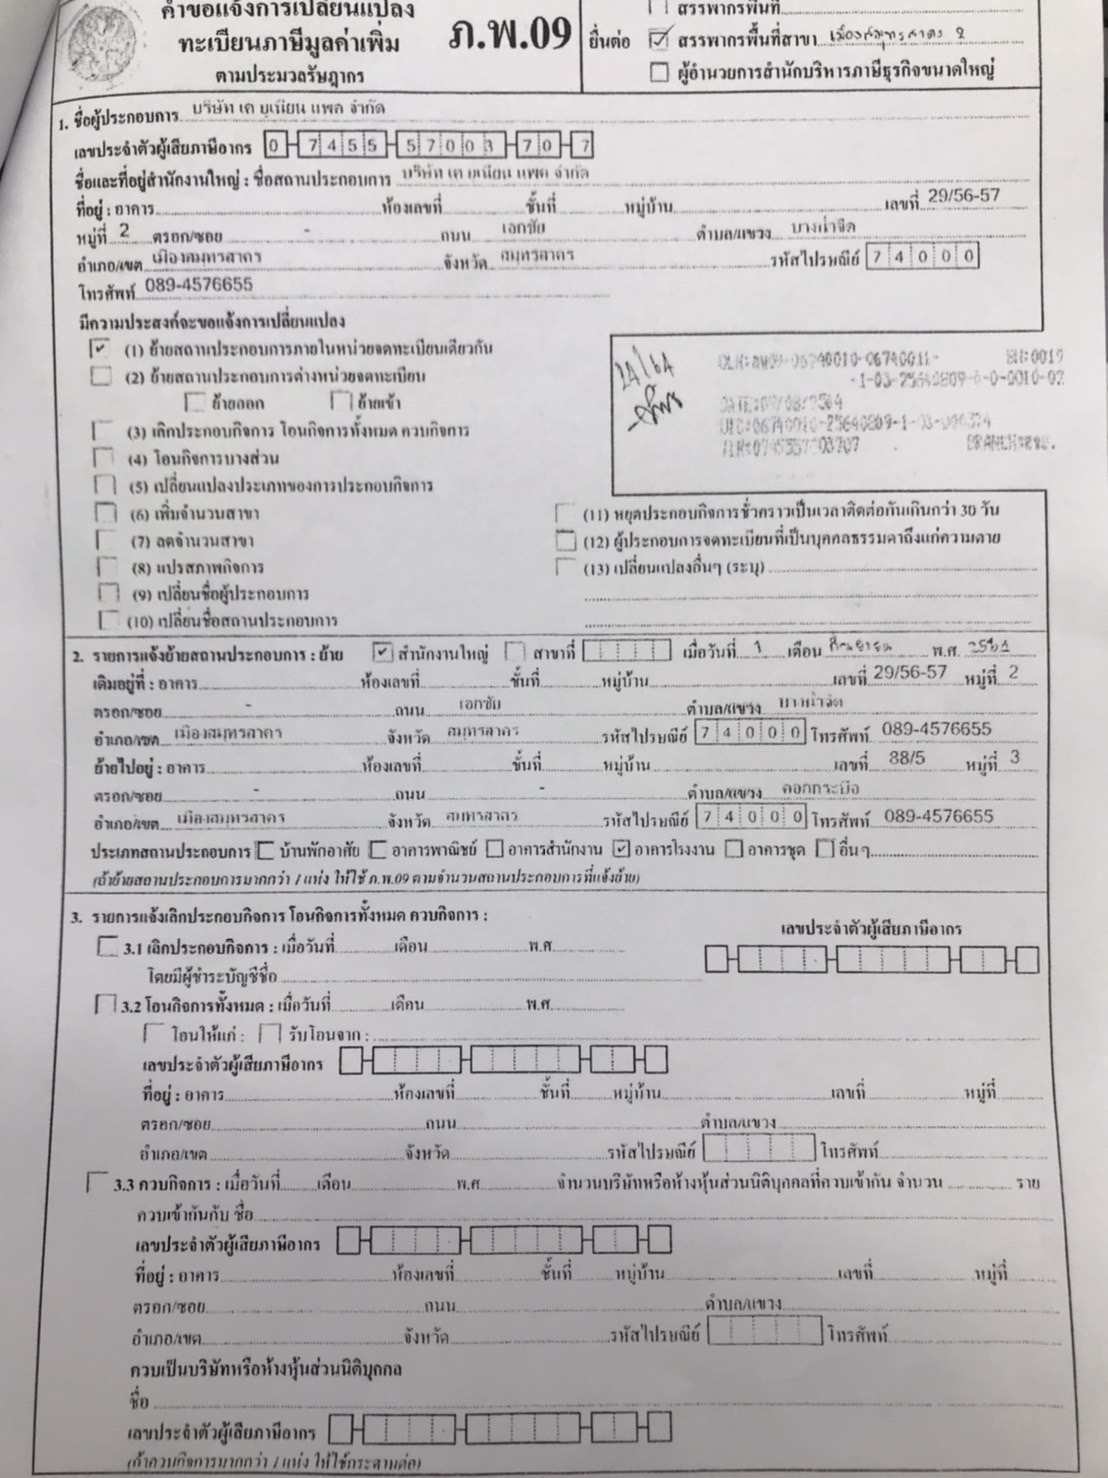 คำขอแจ้งการเปลี่ยนแปลง
ทะเบียนภาษีมูลค่าเพิ่ม
ตามประมวลรัษฎากร
ภ.พ.09
ยื่นต่อ
สรรพากรพื้นที่
สรรพากรพื้นที่สาขา เมืองสมุทรสาคร 2
ผู้อำนวยการสำนักบริหารภาษีธุรกิจขนาดใหญ่
1. ชื่อผู้ประกอบการ บริษัท เค ยูเนี่ยน แพค จำกัด
เลขประจำตัวผู้เสียภาษีอากร 0 7455 57003 70 7
ชื่อและที่อยู่สำนักงานใหญ่ : ชื่อสถานประกอบการ บริษัท เค ยูเนี่ยน แพค จำกัด
ที่อยู่ : อาคาร ห้องเลขที่ ชั้นที่ หมู่บ้าน เลขที่ 29/56-57
หมู่ที่ 2 ตรอก/ซอย - ถนน เอกชัย ตำบล/แขวง บางน้ำจืด
อำเภอ/เขต เมืองสมุทรสาคร จังหวัด สมุทรสาคร รหัสไปรษณีย์ 74000
โทรศัพท์ 089-4576655
มีความประสงค์จะขอแจ้งการเปลี่ยนแปลง
(1) ย้ายสถานประกอบการภายในหน่วยจดทะเบียนเดียวกัน
(2) ย้ายสถานประกอบการต่างหน่วยจดทะเบียน
ย้ายออก ย้ายเข้า
(3) เลิกประกอบกิจการ โอนกิจการทั้งหมด ควบกิจการ
(4) โอนกิจการบางส่วน
(5) เปลี่ยนแปลงประเภทของการประกอบกิจการ
(6) เพิ่มจำนวนสาขา
(7) ลดจำนวนสาขา
(8) แปรสภาพกิจการ
(9) เปลี่ยนชื่อผู้ประกอบการ
(10) เปลี่ยนชื่อสถานประกอบการ
24/64
(11) หยุดประกอบกิจการชั่วคราวเป็นเวลาติดต่อกันเกินกว่า 30 วัน
(12) ผู้ประกอบการจดทะเบียนที่เป็นบุคคลธรรมดาถึงแก่ความตาย
(13) เปลี่ยนแปลงอื่นๆ (ระบุ)
2. รายการแจ้งย้ายสถานประกอบการ : ย้าย สำนักงานใหญ่ สาขาที่ เมื่อวันที่ 1 เดือน กันยายน พ.ศ. 2564
เดิมอยู่ที่ : อาคาร ห้องเลขที่ ชั้นที่ หมู่บ้าน เลขที่ 29/56-57 หมู่ที่ 2
ตรอก/ซอย - ถนน เอกชัย ตำบล/แขวง บางน้ำจืด
อำเภอ/เขต เมืองสมุทรสาคร จังหวัด สมุทรสาคร รหัสไปรษณีย์ 74000 โทรศัพท์ 089-4576655
ย้ายไปอยู่ : อาคาร ห้องเลขที่ ชั้นที่ หมู่บ้าน เลขที่ 88/5 หมู่ที่ 3
ตรอก/ซอย - ถนน - ตำบล/แขวง คอกกระบือ
อำเภอ/เขต เมืองสมุทรสาคร จังหวัด สมุทรสาคร รหัสไปรษณีย์ 74000 โทรศัพท์ 089-4576655
ประเภทสถานประกอบการ บ้านพักอาศัย อาคารพาณิชย์ อาคารสำนักงาน อาคารโรงงาน อาคารชุด อื่น ๆ
(ถ้าย้ายสถานประกอบการมากกว่า 1 แห่ง ให้ใช้ ภ.พ.09 ตามจำนวนสถานประกอบการที่แจ้งย้าย)
3. รายการแจ้งเลิกประกอบกิจการ โอนกิจการทั้งหมด ควบกิจการ :
3.1 เลิกประกอบกิจการ : เมื่อวันที่ เดือน พ.ศ. เลขประจำตัวผู้เสียภาษีอากร
โดยมีผู้ชำระบัญชีชื่อ
3.2 โอนกิจการทั้งหมด : เมื่อวันที่ เดือน พ.ศ.
โอนให้แก่ : รับโอนจาก :
เลขประจำตัวผู้เสียภาษีอากร
ที่อยู่ : อาคาร ห้องเลขที่ ชั้นที่ หมู่บ้าน เลขที่ หมู่ที่
ตรอก/ซอย ถนน ตำบล/แขวง
อำเภอ/เขต จังหวัด รหัสไปรษณีย์ โทรศัพท์
3.3 ควบกิจการ : เมื่อวันที่ เดือน พ.ศ. จำนวนบริษัทหรือห้างหุ้นส่วนนิติบุคคลที่ควบเข้ากัน จำนวน ราย
ควบเข้ากันกับ ชื่อ
เลขประจำตัวผู้เสียภาษีอากร
ที่อยู่ : อาคาร ห้องเลขที่ ชั้นที่ หมู่บ้าน เลขที่ หมู่ที่
ตรอก/ซอย ถนน ตำบล/แขวง
อำเภอ/เขต จังหวัด รหัสไปรษณีย์ โทรศัพท์
ควบเป็นบริษัทหรือห้างหุ้นส่วนนิติบุคคล
ชื่อ
เลขประจำตัวผู้เสียภาษีอากร
(ถ้าควบกิจการมากกว่า 1 แห่ง ให้ใช้กระดาษต่อ)